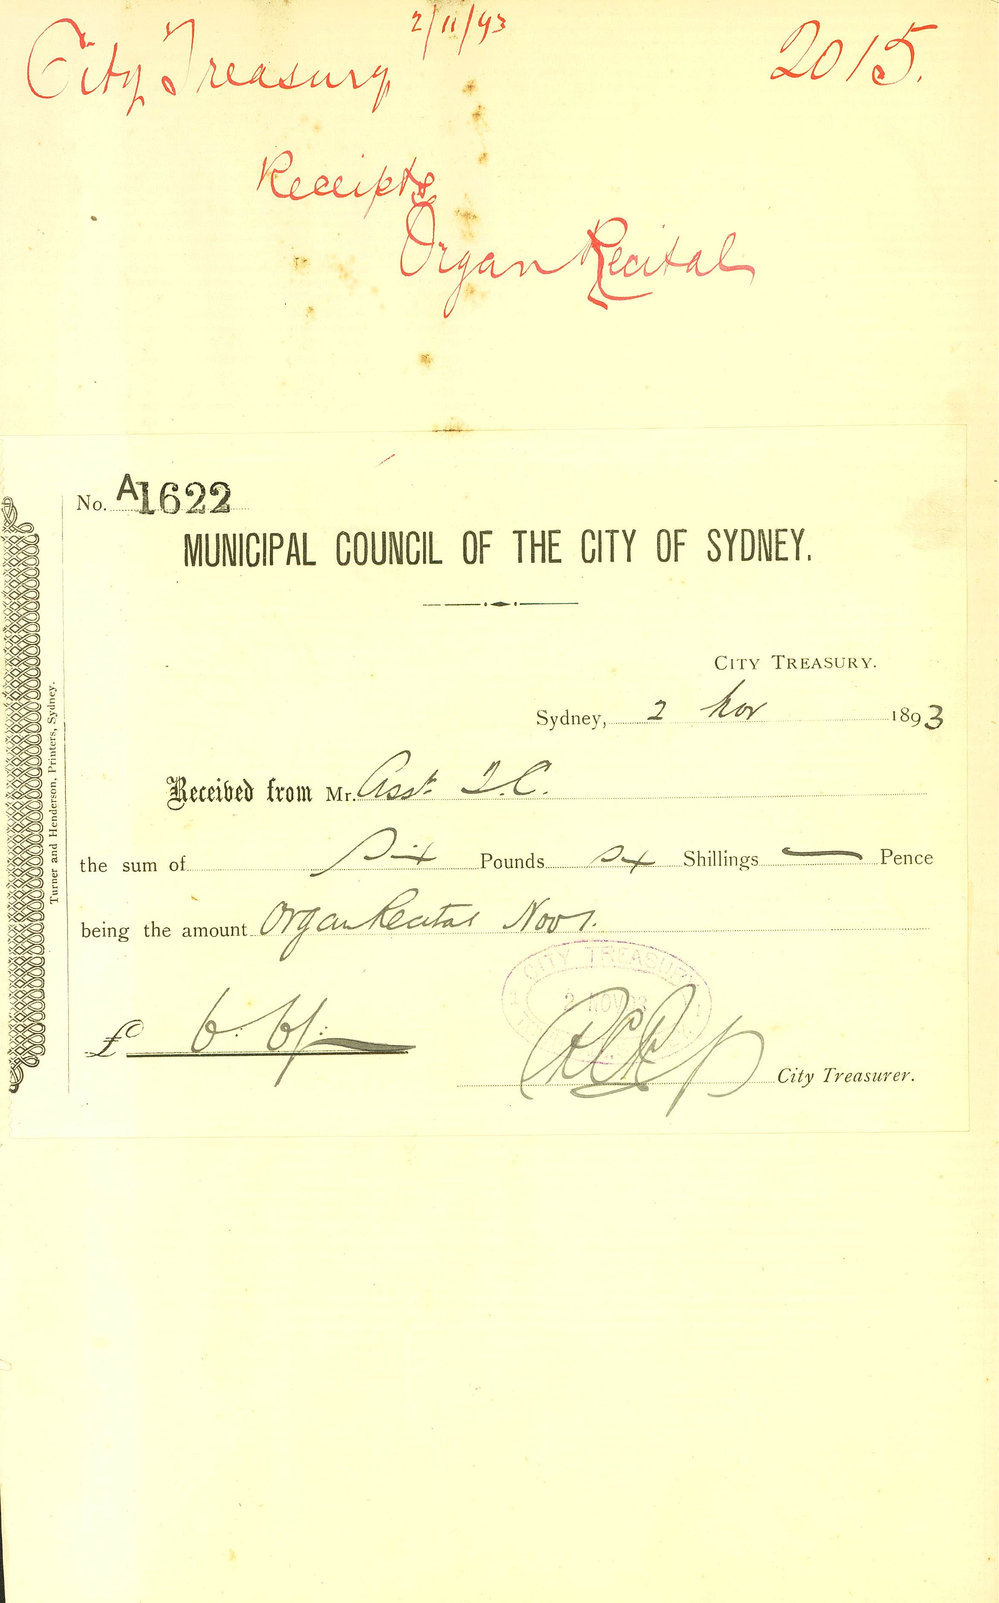 2/11/93
City Treasury
2015.
Receipts
Organ Recital
No. A1622
MUNICIPAL COUNCIL OF THE CITY OF SYDNEY.
CITY TREASURY.
Sydney, 2 Nov 1893
Received from Mr. Asst. T.C.
the sum of Six Pounds Six Shillings — Pence
being the amount Organ Recital Nov 1.
CITY TREASURY
2 NOV 93
£ 6:6/:
City Treasurer.
Turner and Henderson, Printers, Sydney.